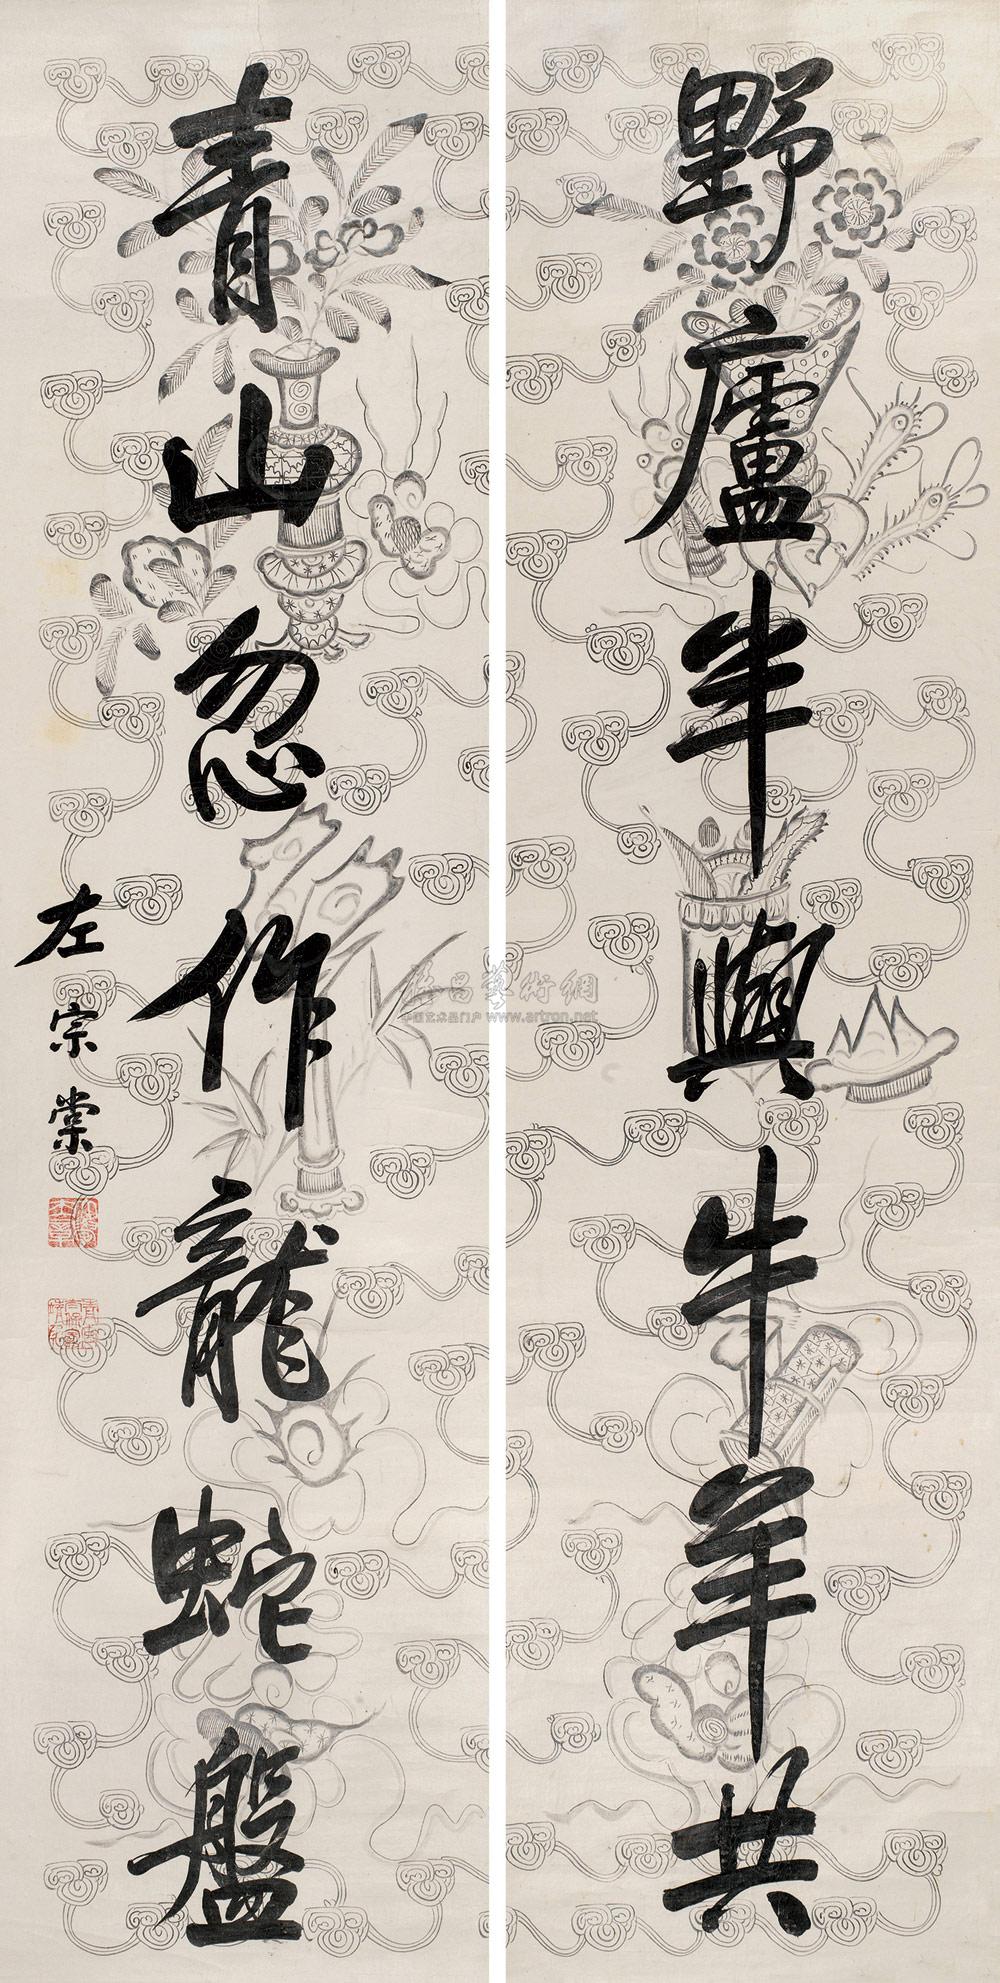 野廬半與牛羊共
青山忽作龍蛇盤
左宗棠
www.artron.net